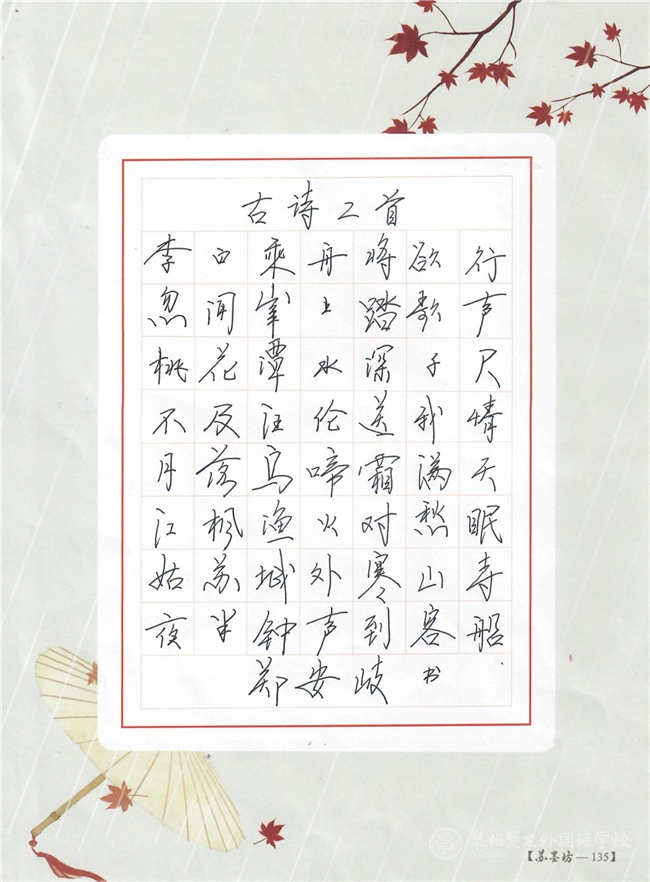 古诗二首
李白乘舟将欲行
忽闻岸上踏歌声
桃花潭水深千尺
不及汪伦送我情
月落乌啼霜满天
江枫渔火对愁眠
姑苏城外寒山寺
夜半钟声到客船
郑安岐 书
泉州聚龙外国语学校
【苏墨坊—135】